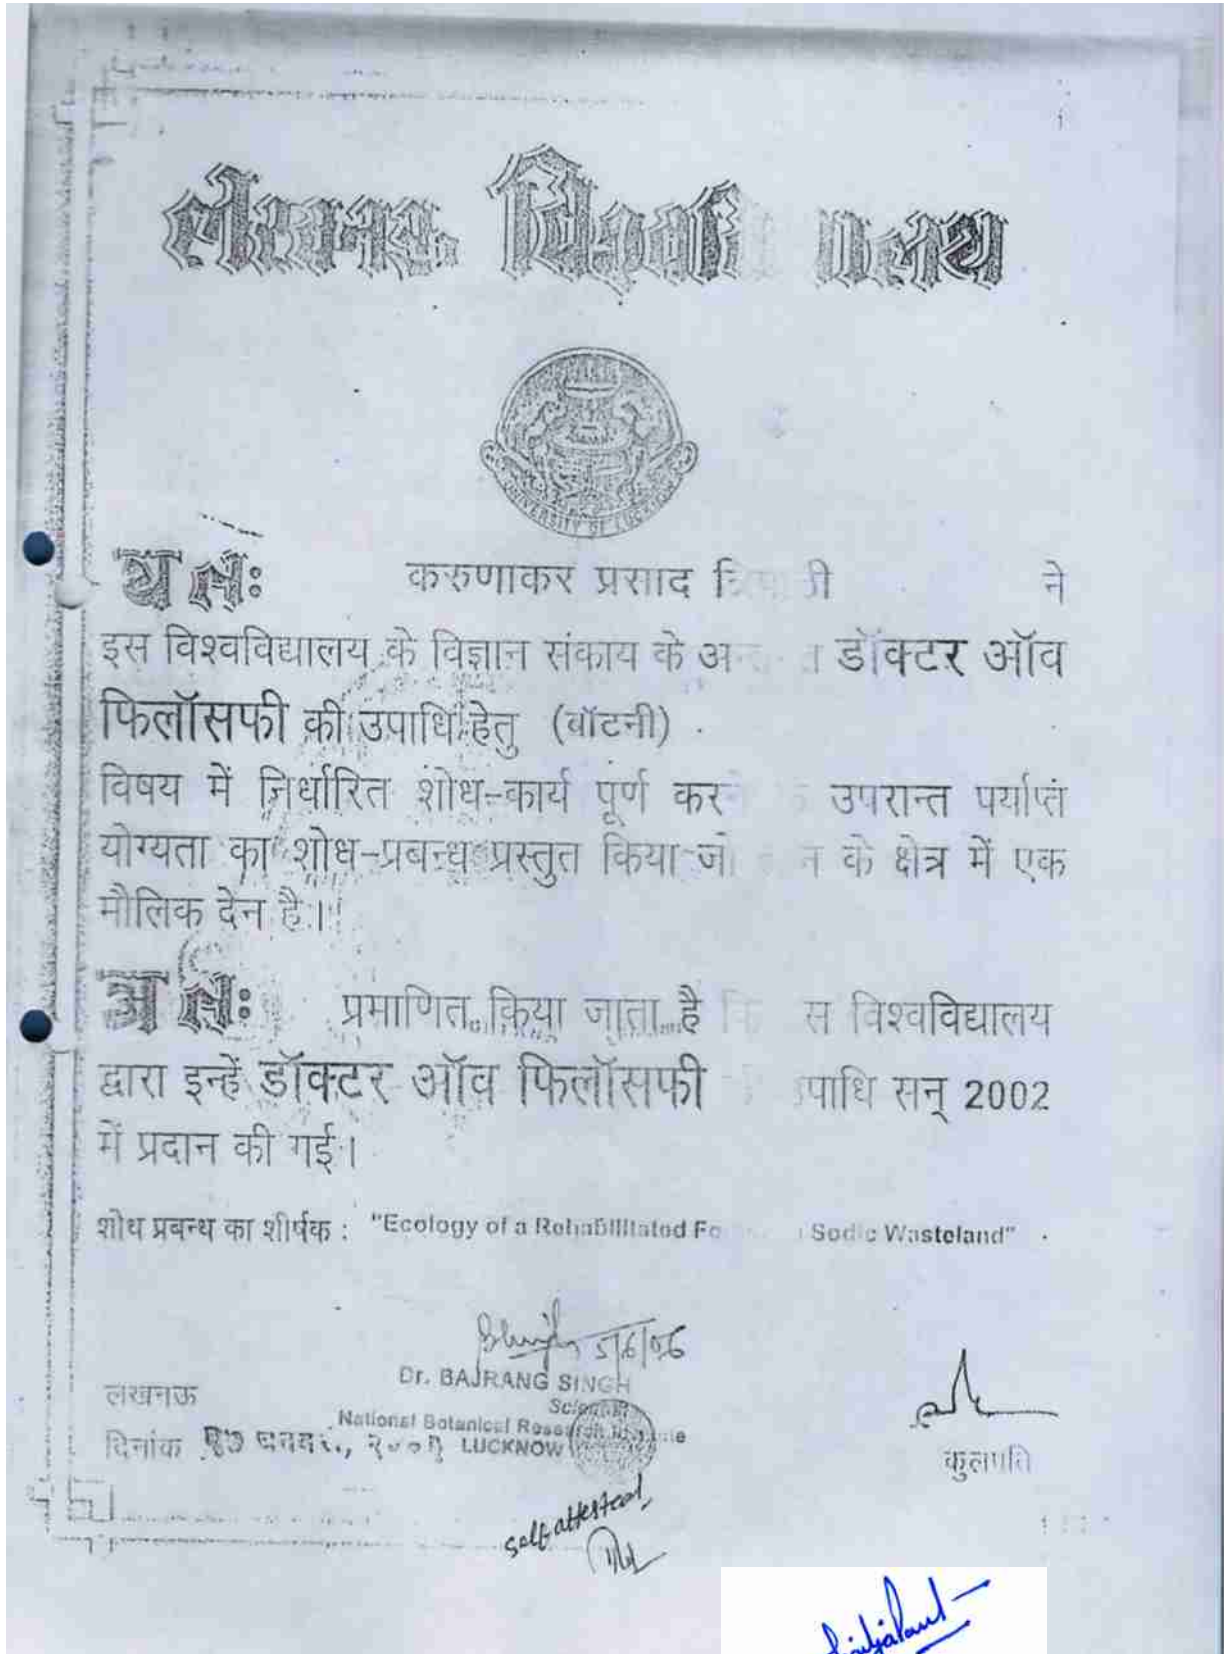 लखनऊ
UNIVERSITY OF LUCKNOW
यतः करुणाकर प्रसाद ने
इस विश्वविद्यालय के विज्ञान संकाय के डॉक्टर ऑव
फिलॉसफी की उपाधि हेतु (बॉटनी)
विषय में निर्धारित शोध-कार्य पूर्ण उपरान्त पर्याप्त
योग्यता का शोध-प्रबन्ध प्रस्तुत किया के क्षेत्र में एक
मौलिक देन है।
अतः प्रमाणित किया जाता है विश्वविद्यालय
द्वारा इन्हें डॉक्टर ऑव फिलॉसफी सन् 2002
में प्रदान की गई।
शोध प्रबन्ध का शीर्षक : "Ecology of a Rehabilitated Sodic Wasteland"
5/6/06
Dr. BAJRANG SINGH
Scientist
National Botanical Research Institute
LUCKNOW
लखनऊ
दिनांक
कुलपति
self attested